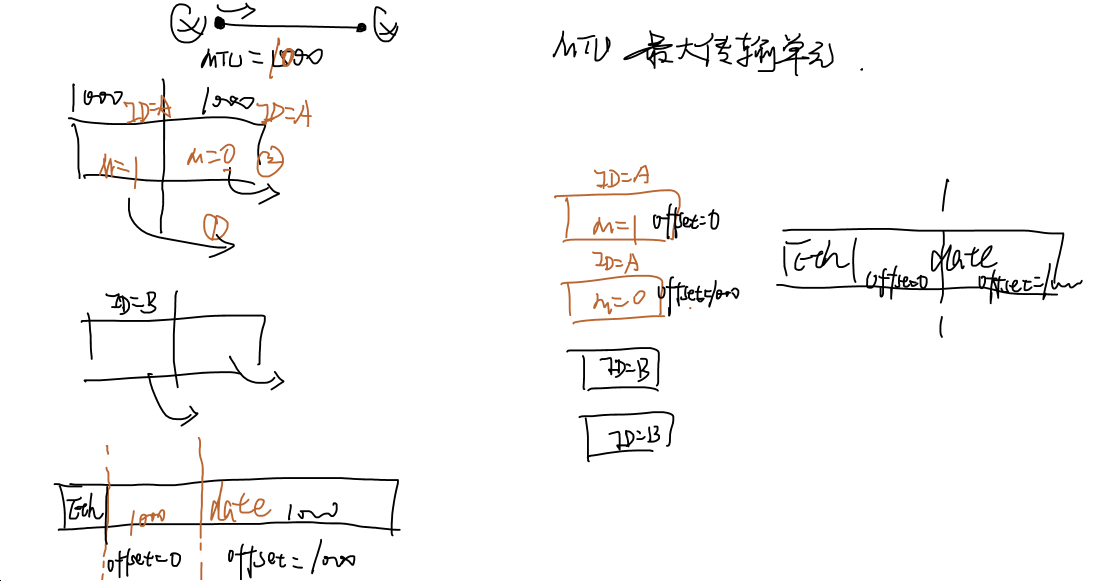 MTU = 1000
MTU 最大传输单元.
1000 ID=A 1000 ID=A
M=1 M=0 ②
①
ID=B
Eth 1000 date 1000
offset=0 offset=1000
ID=A
m=1 offset=0
ID=A
m=0 offset=1000
ID=B
ID=B
Eth date
offset=0 offset=1000